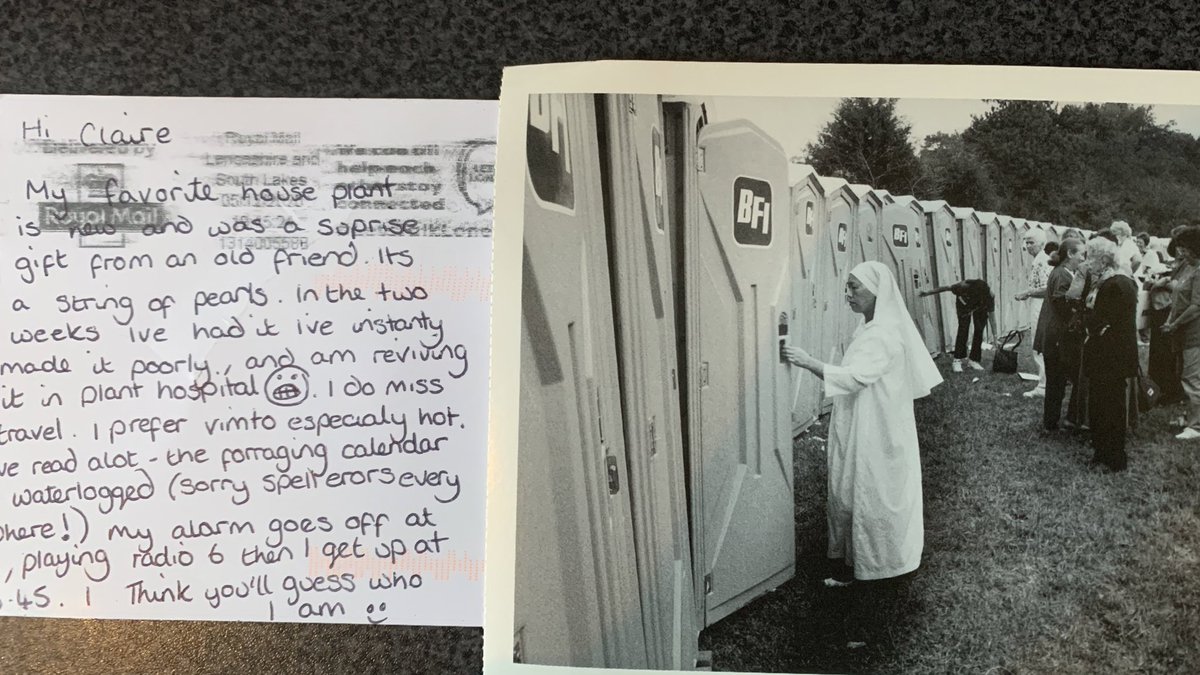 Hi Claire
My favorite house plant
is new and was a suprise
gift from an old friend. Its
a string of pearls. In the two
weeks ive had it ive instanty
made it poorly, and am reviving
it in plant hospital. I do miss
travel. I prefer vimto especialy hot.
ve read alot - the forraging calendar
waterlogged (sorry spell erors every
here!) My alarm goes off at
, playing radio 6 then I get up at
.45. I Think you'll guess who
I am
Delivered by
Royal Mail
Royal Mail
Lancashire and
South Lakes
We can all
help each
stay
connected
BFI
BFI